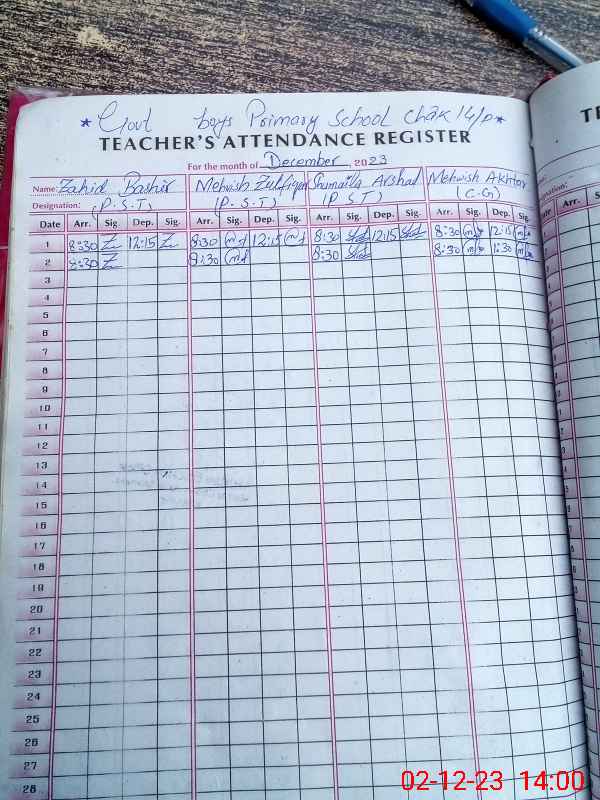 * Govt boys Primary School Chak 14/p *
TEACHER'S ATTENDANCE REGISTER
For the month of December 2023
Name: Zahid Bashir Mehwish Zulfiqar Shumaila Arshad Mehwish Akhtar
Designation: (P.S.T) (P.S.T) (P.S.T) (C.G)
Date Arr. Sig. Dep. Sig. Arr. Sig. Dep. Sig. Arr. Sig. Dep. Sig. Arr. Sig. Dep. Sig. Date Arr.
1 8:30 12:15 8:30 12:15 8:30 12:15 8:30 12:15
2 8:30 8:30 8:30 8:30 1:30
3
4
5
6
7
8
9
10
11
12
13
14
15
16
17
18
19
20
21
22
23
24
25
26
27
28
02-12-23 14:00